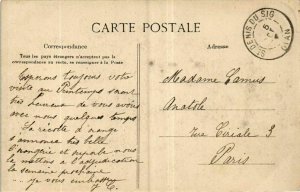 CARTE POSTALE
Correspondance
Tous les pays étrangers n'acceptent pas la correspondance au recto, se renseigner à la Poste
Adresse
ST DENIS DU SIG
ORAN
Espérons toujours votre
visite au Printemps
heureux de vous
avec nous quelques temps
La récolte d'orange
s'annonce très belle
nous
la mettons à l'adjudication
la semaine prochaine
je vous embrasse
Madame Camus
Anatole
rue Cériale 3
Paris